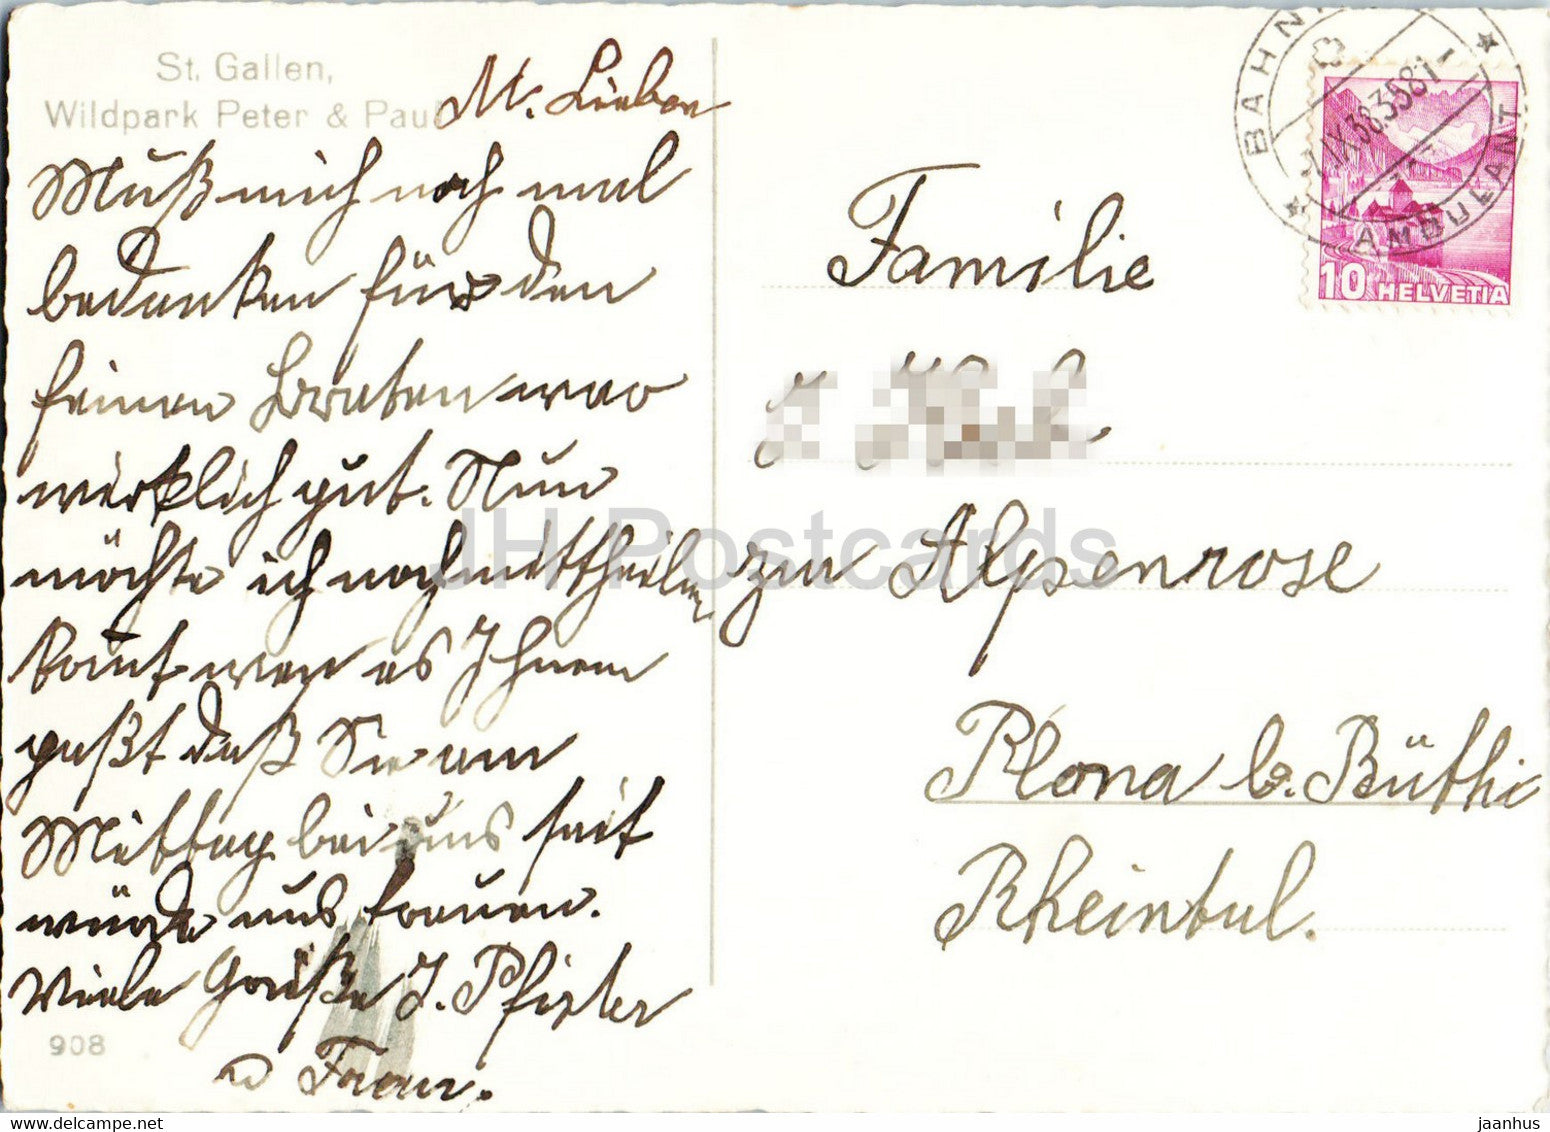 St. Gallen,
Wildpark Peter & Paul
M. Lieben
Muß mich noch mal
bedanken für den
feinen Braten war
wirklich gut. Nun
möchte ich noch mittheilen
wan es Ihnen
paßt daß Sie am
Mittag bei uns seit
würde uns freuen.
Viele Grüße J. Pfister
u Frau.
908
BAHN
AMBULANT
10 HELVETIA
Familie
zur Alpenrose
Plona b. Rüthi
Rheintal.
JH Postcards
www.delcampe.net
jaanhus